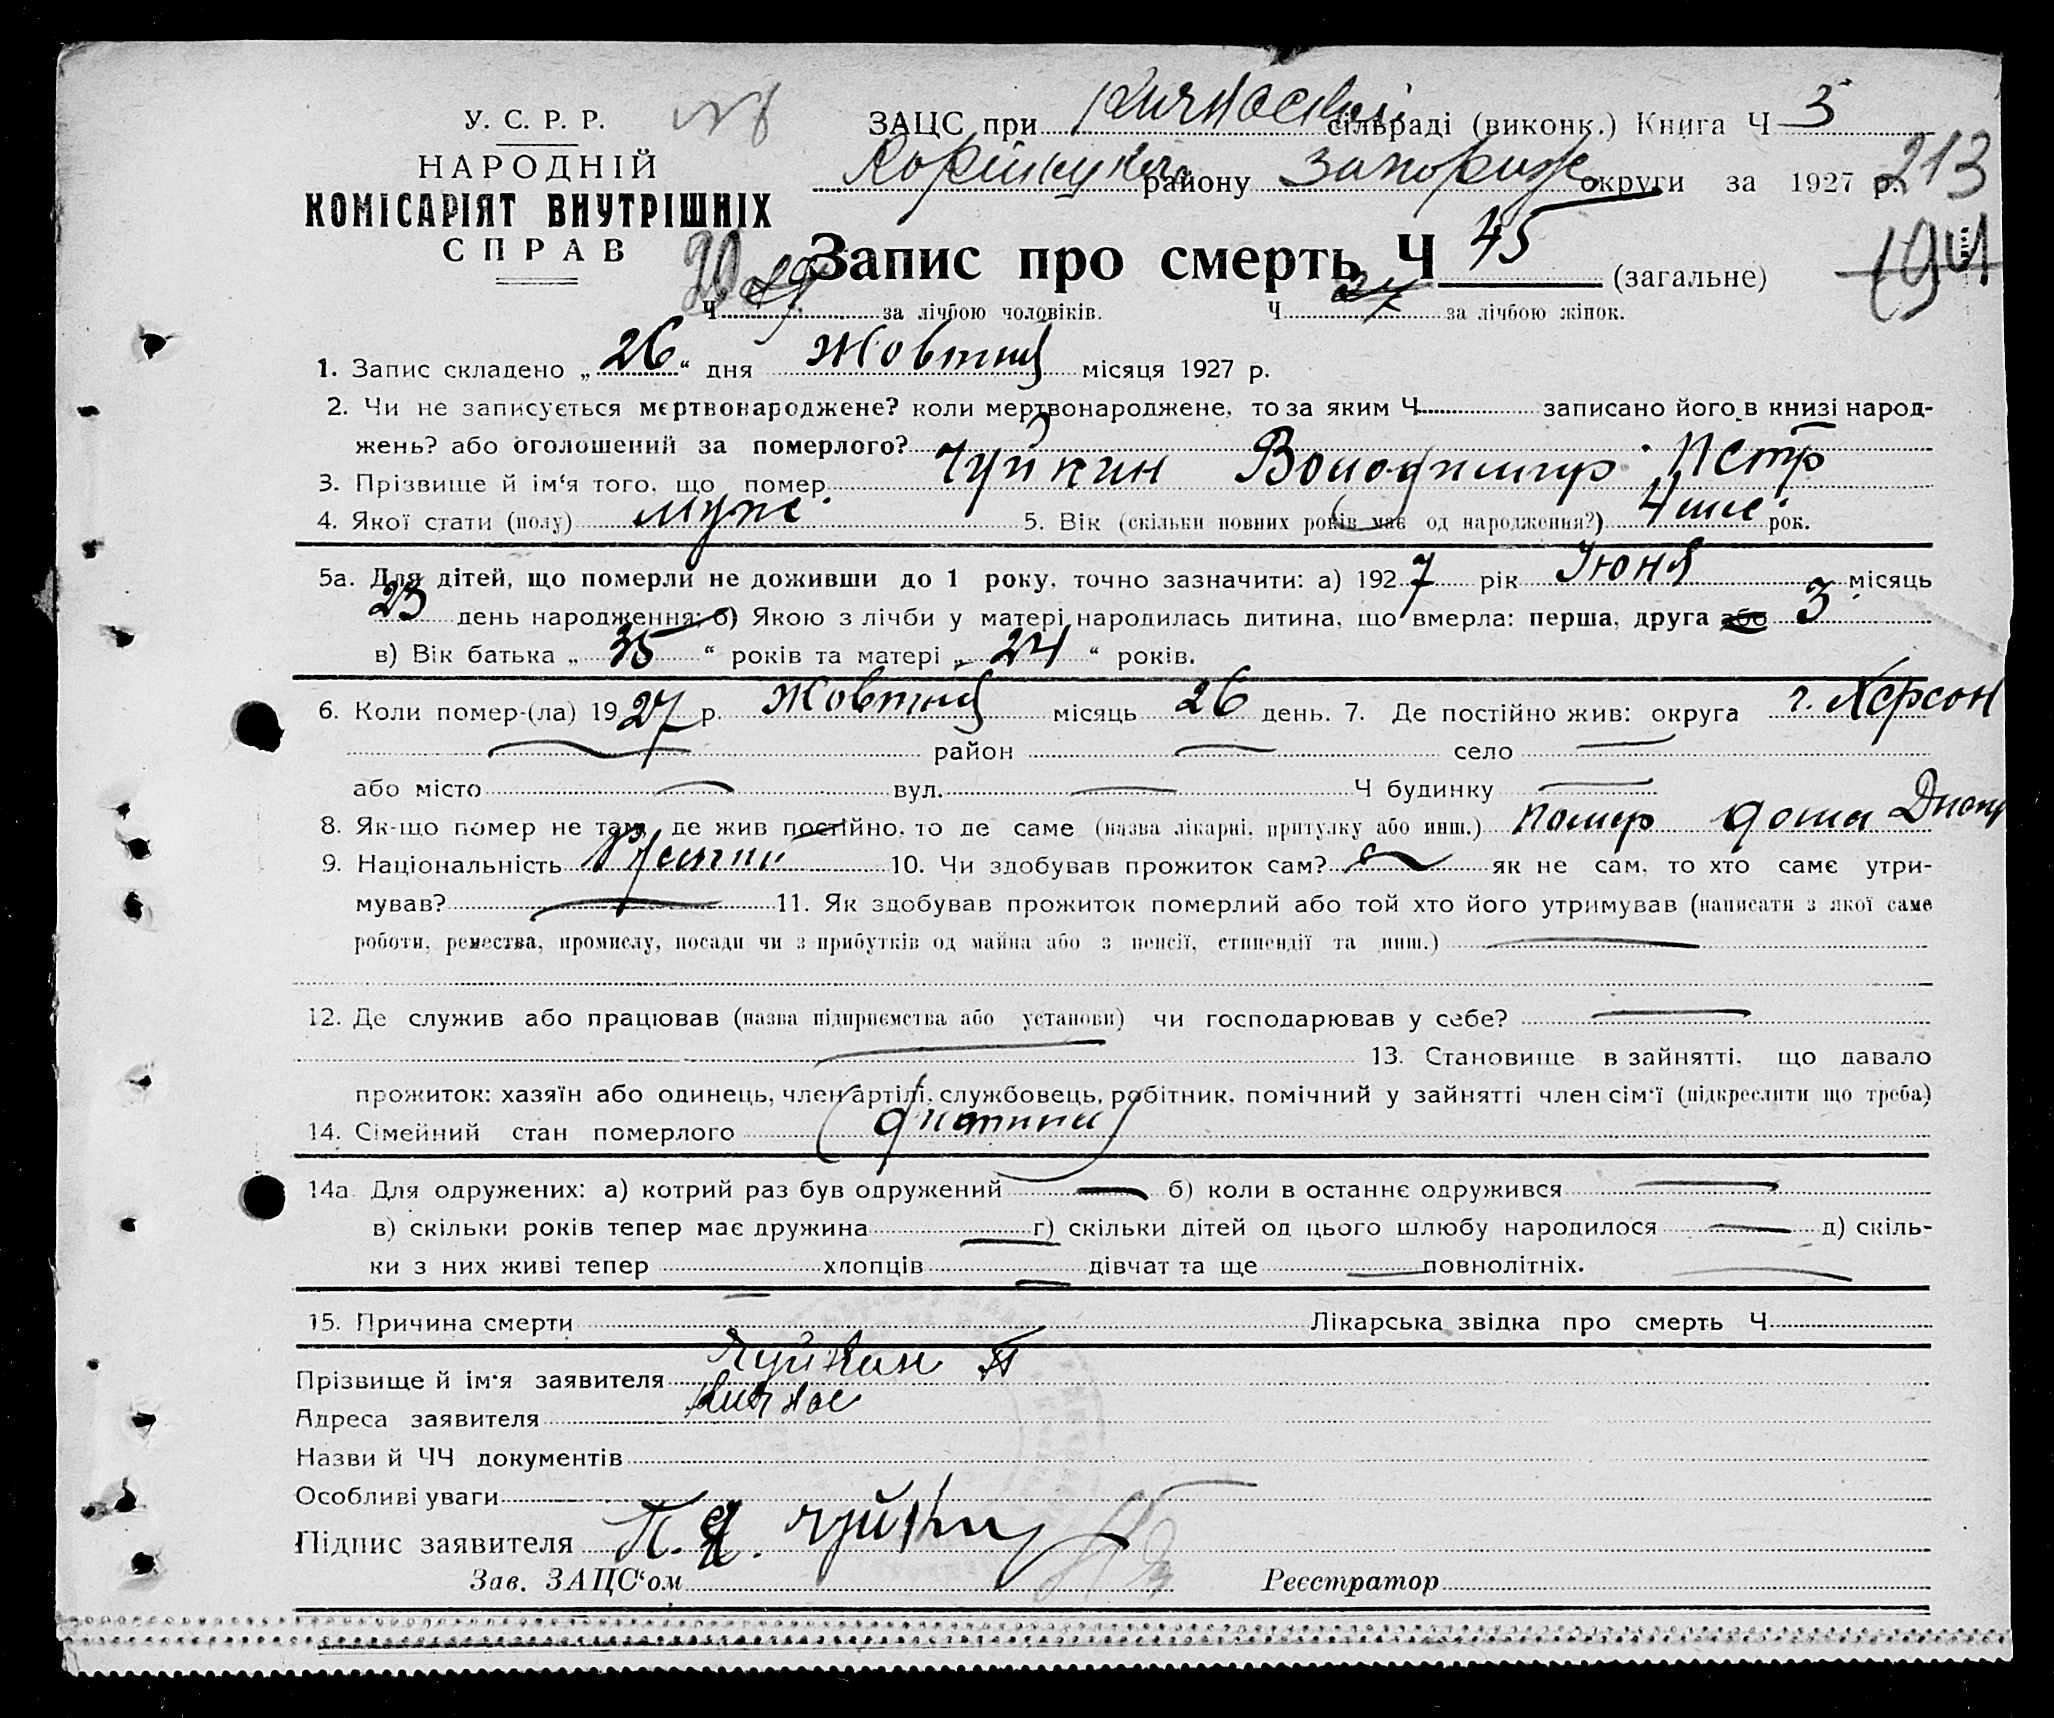 У. С. Р. Р.
НАРОДНІЙ
КОМІСАРІЯТ ВНУТРІШНІХ
СПРАВ
ЗАЦС при Кичкаській сільраді (виконк.) Книга Ч 3
району Запоріж округи за 1927 р. 213
Запис про смерть Ч 45 (загальне) 194
Ч 20 за лічбою чоловіків. Ч 24 за лічбою жінок.
1. Запис складено „26“ дня Жовтня місяця 1927 р.
2. Чи не записується мертвонароджене? коли мертвонароджене, то за яким Ч записано його в книзі народ-
жень? або оголошений за померлого?
3. Прізвище й ім'я того, що помер Чуйкин Володимир Петр
4. Якої стати (полу) муже 5. Вік (скільки повних років має од народження?) 4 міс рок.
5а. Для дітей, що померли не доживши до 1 року, точно зазначити: а) 1927 рік Июня місяць
23 день народження; б) Якою з лічби у матері народилась дитина, що вмерла: перша, друга або 3
в) Вік батька „35“ років та матері „24“ років.
6. Коли помер-(ла) 1927 р. Жовтня місяць 26 день. 7. Де постійно жив: округа г. Херсон
район село
або місто вул. Ч будинку
8. Як-що помер не там, де жив постійно, то де саме (назва лікарні, притулку або инш.) помер дома
9. Національність 10. Чи здобував прожиток сам? як не сам, то хто саме утри-
мував? 11. Як здобував прожиток померлий або той хто його утримував (написати з якої саме
роботи, ремества, промислу, посади чи з прибутків од майна або з пенсії, стипендії та инш.)
12. Де служив або працював (назва підприємства або установи) чи господарював у себе?
13. Становище в зайнятті, що давало
прожиток: хазяїн або одинець, член артілі, службовець, робітник, помічний у зайнятті член сім'ї (підкреслити що треба)
14. Сімейний стан померлого дитина
14а Для одружених: а) котрий раз був одружений б) коли в останнє одружився
в) скільки років тепер має дружина г) скільки дітей од цього шлюбу народилося д) скіль-
ки з них живі тепер хлопців дівчат та ще повнолітніх.
15. Причина смерти Лікарська звідка про смерть Ч
Прізвище й ім'я заявителя Чуйкин П
Адреса заявителя Кичкас
Назви й ЧЧ документів
Особливі уваги
Підпис заявителя П. Я. Чуйкин
Зав. ЗАЦС“ом Реєстратор